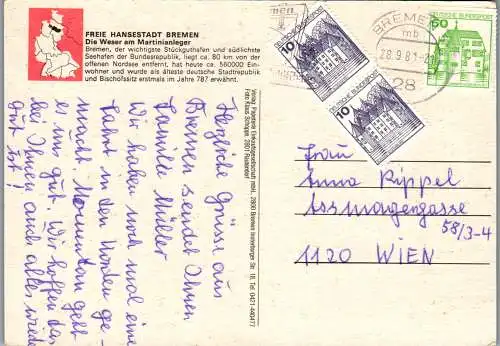 FREIE HANSESTADT BREMEN
Die Weser am Martinianleger
Bremen, der wichtigste Stückguthafen und südlichste
Seehafen der Bundesrepublik, liegt ca. 80 km von der
offenen Nordsee entfernt, hat heute ca. 560000 Ein-
wohner und wurde als älteste deutsche Stadtrepublik
und Bischofssitz erstmals im Jahre 787 erwähnt.
Herzliche Grüsse aus
Bremen sendet Ihnen
Familie Müller
Wir haben noch mal eine
Fahrt in den Norden ge-
macht. Momentan geht
es uns gut. Wir hoffen das
bei Ihnen auch alles wieder
gut ist!
Verlag: Papeterie Einkaufsgesellschaft mbH, 2800 Bremen
DEUTSCHE BUNDESPOST
10
DEUTSCHE BUNDESPOST
10
DEUTSCHE BUNDESPOST
50
BREMEN
mb
28.9.81
28
Frau
Anna Rippel
Assmayergasse
58/3-4
1120 WIEN